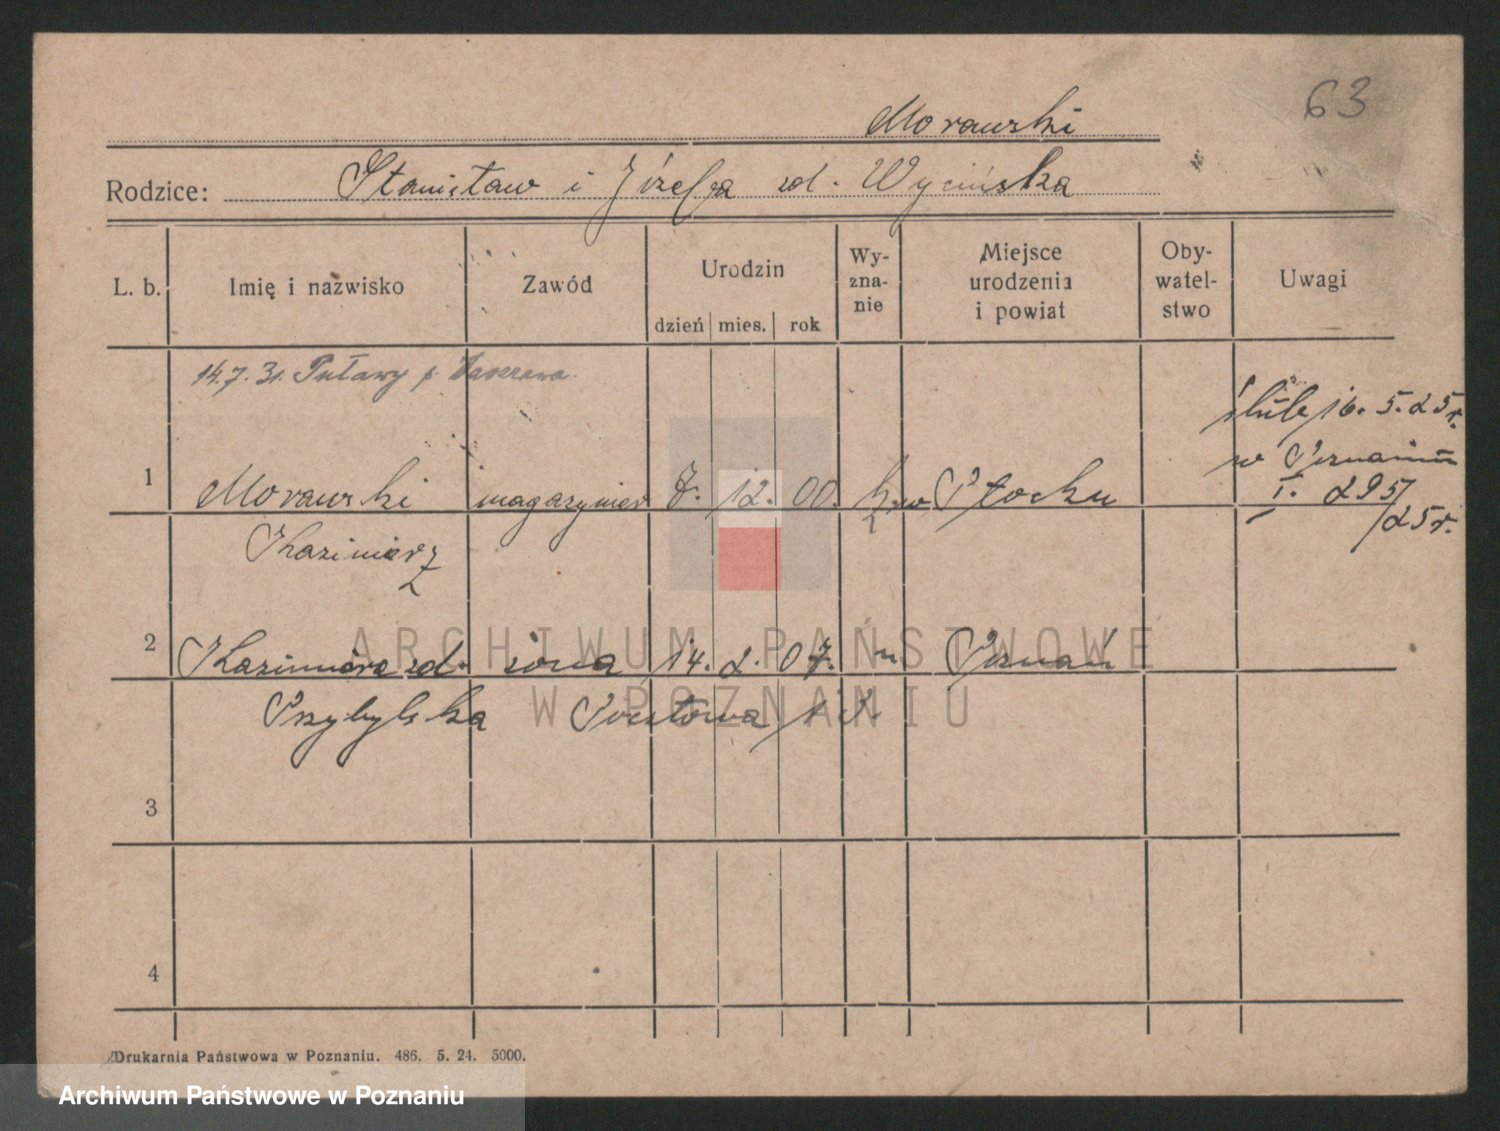 63
Morawski
Rodzice: Stanisław i Józefa zd. Wycińska
L. b. Imię i nazwisko Zawód Urodzin dzień mies. rok Wy-zna-nie Miejsce urodzenia i powiat Oby-watel-stwo Uwagi
14.7.31. Puławy p. Warszawa.
ślub 16. 5. 25 r.
w Poznaniu
1 Morawski magazynier 7. 12. 00. Płocku I. 295/
Kazimierz /25 r.
2 Kazimiera zd. żona 14. 2. 07. " Poznań
Przybylska Pocztowa
3
4
Drukarnia Państwowa w Poznaniu. 486. 5. 24. 5000.
ARCHIWUM PAŃSTWOWE
W POZNANIU
Archiwum Państwowe w Poznaniu